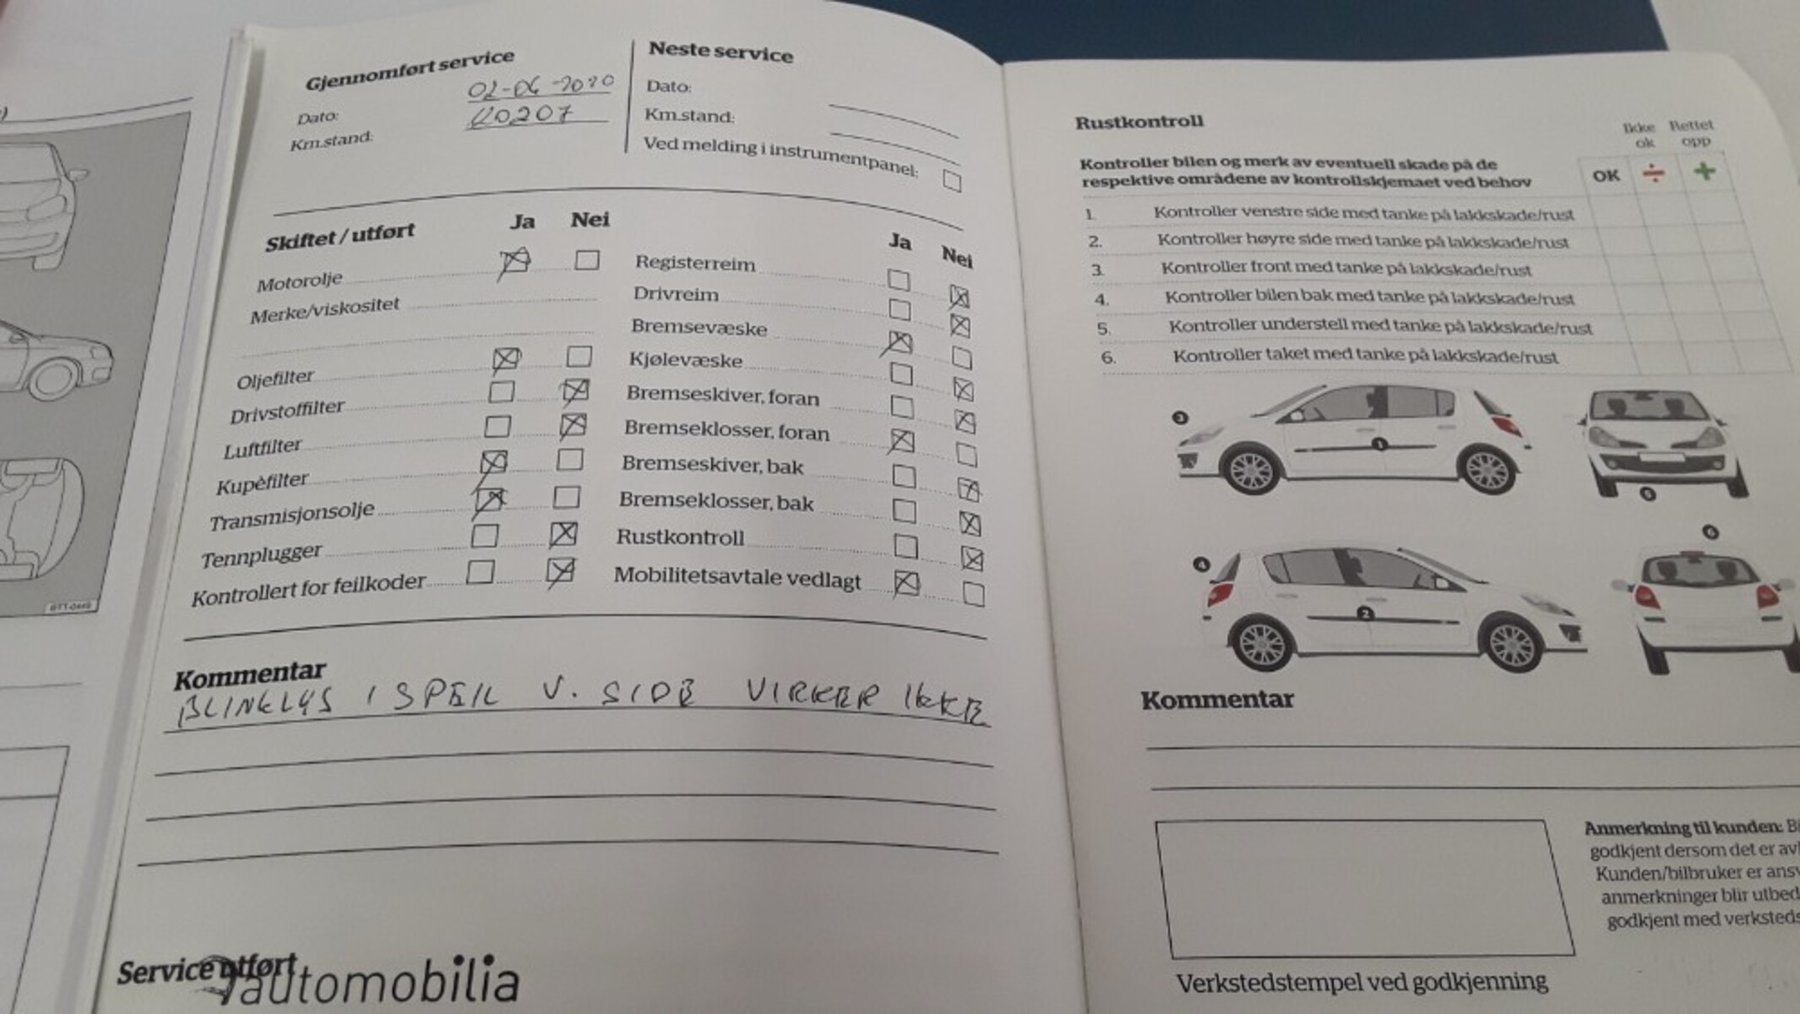 Gjennomført service
Dato: 02-06-2020
Km.stand: 110207
Neste service
Dato:
Km.stand:
Ved melding i instrumentpanel:
Skiftet / utført Ja Nei
Motorolje
Merke/viskositet
Oljefilter
Drivstoffilter
Luftfilter
Kupèfilter
Transmisjonsolje
Tennplugger
Kontrollert for feilkoder
Ja Nei
Registerreim
Drivreim
Bremsevæske
Kjølevæske
Bremseskiver, foran
Bremseklosser, foran
Bremseskiver, bak
Bremseklosser, bak
Rustkontroll
Mobilitetsavtale vedlagt
Kommentar
BLINKLYS I SPEIL V. SIDE VIRKER IKKE
Service utført
automobilia
Rustkontroll
Kontroller bilen og merk av eventuell skade på de
respektive områdene av kontrollskjemaet ved behov
OK
Ikke
ok
÷
Rettet
opp
+
1. Kontroller venstre side med tanke på lakkskade/rust
2. Kontroller høyre side med tanke på lakkskade/rust
3. Kontroller front med tanke på lakkskade/rust
4. Kontroller bilen bak med tanke på lakkskade/rust
5. Kontroller understell med tanke på lakkskade/rust
6. Kontroller taket med tanke på lakkskade/rust
3
1
5
4
2
6
Kommentar
Verkstedstempel ved godkjenning
Anmerkning til kunden:
godkjent dersom det er
Kunden/bilbruker er
anmerkninger blir
godkjent med